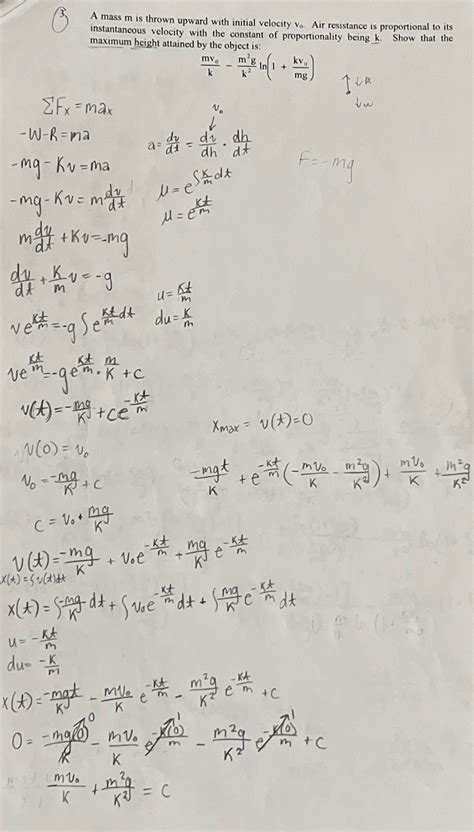 3
A mass m is thrown upward with initial velocity v₀. Air resistance is proportional to its
instantaneous velocity with the constant of proportionality being k. Show that the
maximum height attained by the object is:
mv₀/k − m²g/k² ln(1 + kv₀/mg)
↑ ↓R
↓w
ΣFx = max
-W-R=ma
-mg-Kv=ma
-mg-Kv=m dv/dt
m dv/dt + Kv=-mg
dv/dt + K/m v = -g
v₀
↓
a= dv/dt = dv/dh · dh/dt
μ = e^∫K/m dt
μ = e^Kt/m
F=-mg
ve^Kt/m = -g ∫ e^Kt/m dt
u = Kt/m
du = K/m
ve^Kt/m = -ge^Kt/m · m/K + c
v(t) = -mg/K + ce^-Kt/m
v(0) = v₀
v₀ = -mg/K + c
c = v₀ + mg/K
xmax = v(t)=0
-mgt/K + e^-Kt/m (-mv₀/K - m²g/K²) + mv₀/K + m²g/K²
v(t) = -mg/K + v₀e^-Kt/m + mg/K e^-Kt/m
x(t) = ∫v(t)dt
x(t) = ∫-mg/K dt + ∫v₀e^-Kt/m dt + ∫mg/K e^-Kt/m dt
u = -Kt/m
du = -K/m
x(t) = -mgt/K - mv₀/K e^-Kt/m - m²g/K² e^-Kt/m + c
0 = -mg(0)/K 0 - mv₀/K e^-K(0)/m 1 - m²g/K² e^-K(0)/m 1 + c
mv₀/K + m²g/K² = c